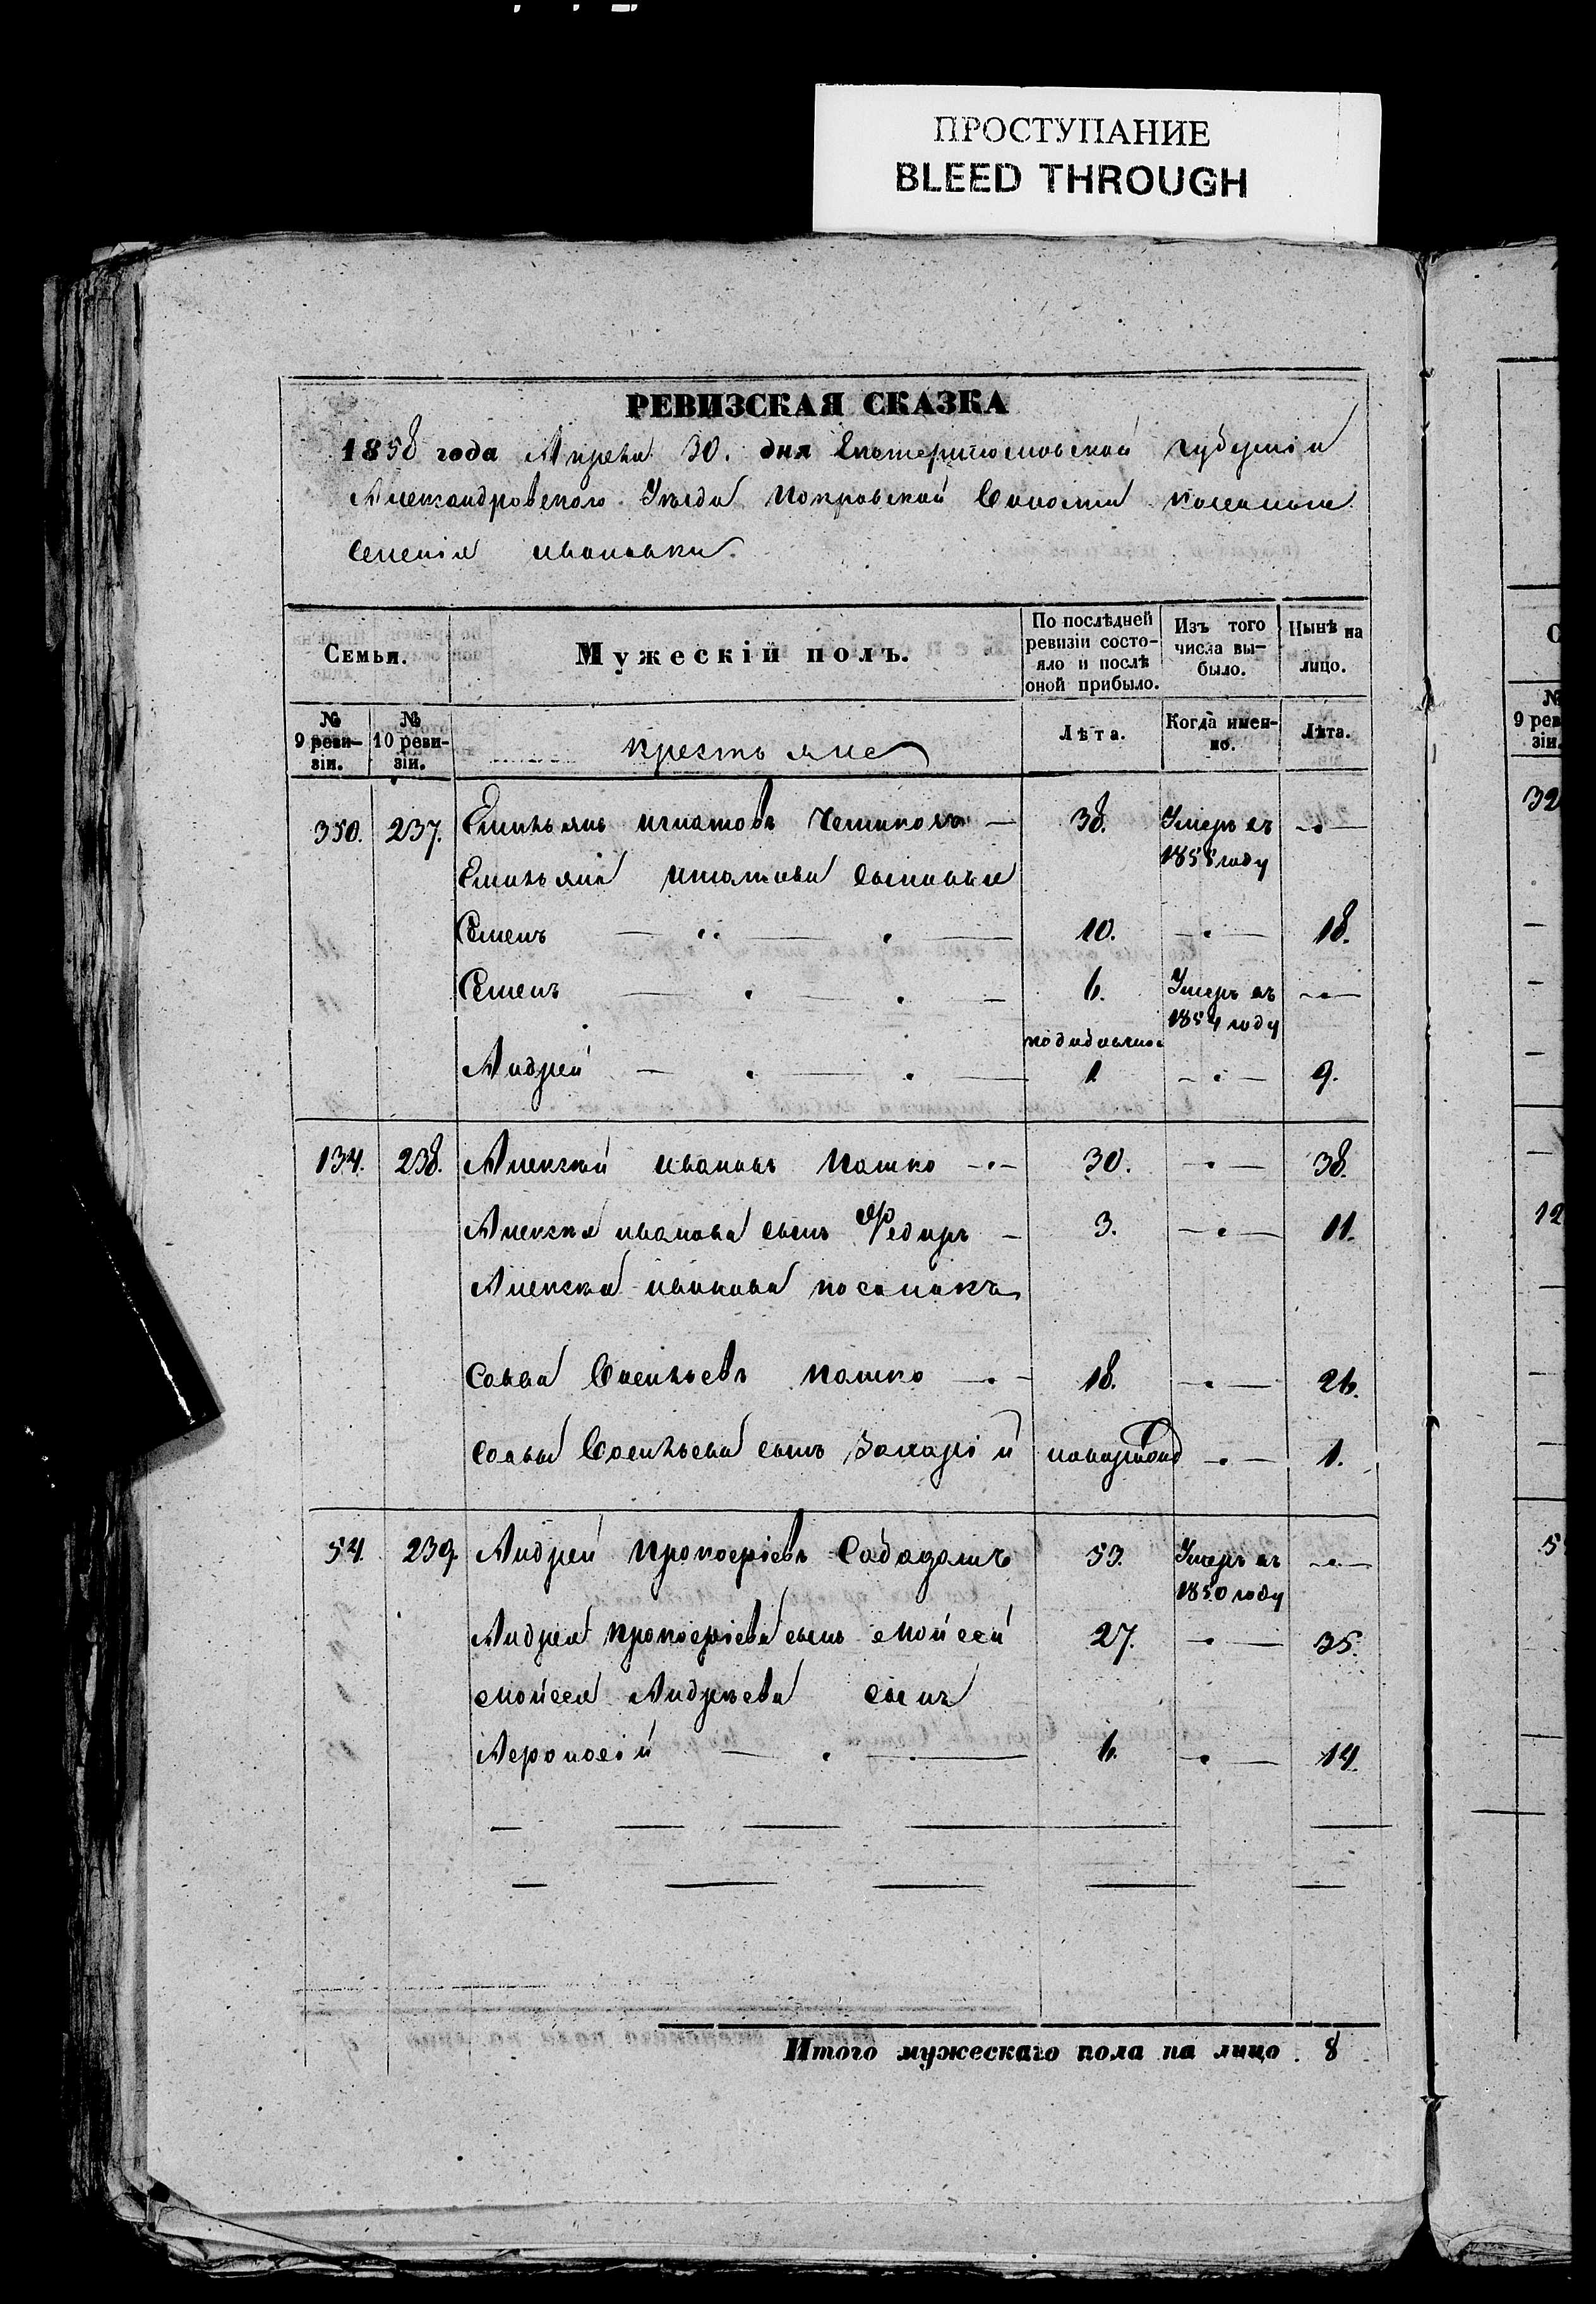 ПРОСТУПАНИЕ
BLEED THROUGH
РЕВИЗСКАЯ СКАЗКА
1858 года Апреля 30. дня Екатеринославской губернiи
Александровского Уезда Покровской Волости казеннаго
селенiя Ивановки.
Семьи.
Мужескiй полъ.
По послѣдней ревизiи состо-яло и послѣ оной прибыло.
Изъ того числа вы-было.
Нынѣ на лицо.
№ 9 реви-зiи.
№ 10 реви-зiи.
крестьяне
Лѣта.
Когда имен-но.
Лѣта.
350. 237. Емильянъ Игнатовъ — 38. Умеръ въ 1855 году —•—
Емильяна Игнатова сыновья
Семенъ — 10. —•— 18.
Семенъ — 6. Умеръ въ 1854 году —•—
Андрей — 1 —•— 9.
134. 238. Алексѣй Ивановъ Пошко —•— 30. —•— 38.
Алексѣя Иванова сынъ Федиръ — 3. —•— 11.
Алексѣя Иванова
Савва Васильевъ Пошко —•— 18. —•— 26.
Саввы Васильева сынъ Захарiй —•— 1.
54. 239. Андрей Прокофiевъ 53. Умеръ въ 1850 году —•—
Андрея Прокофiева сынъ Мойсей 27. —•— 35.
Мойсея Андрѣева сынъ
Афонасiй — 6. —•— 14.
Итого мужескаго пола на лицо . 8
С
№ 9 рев зiи.
32
12
5